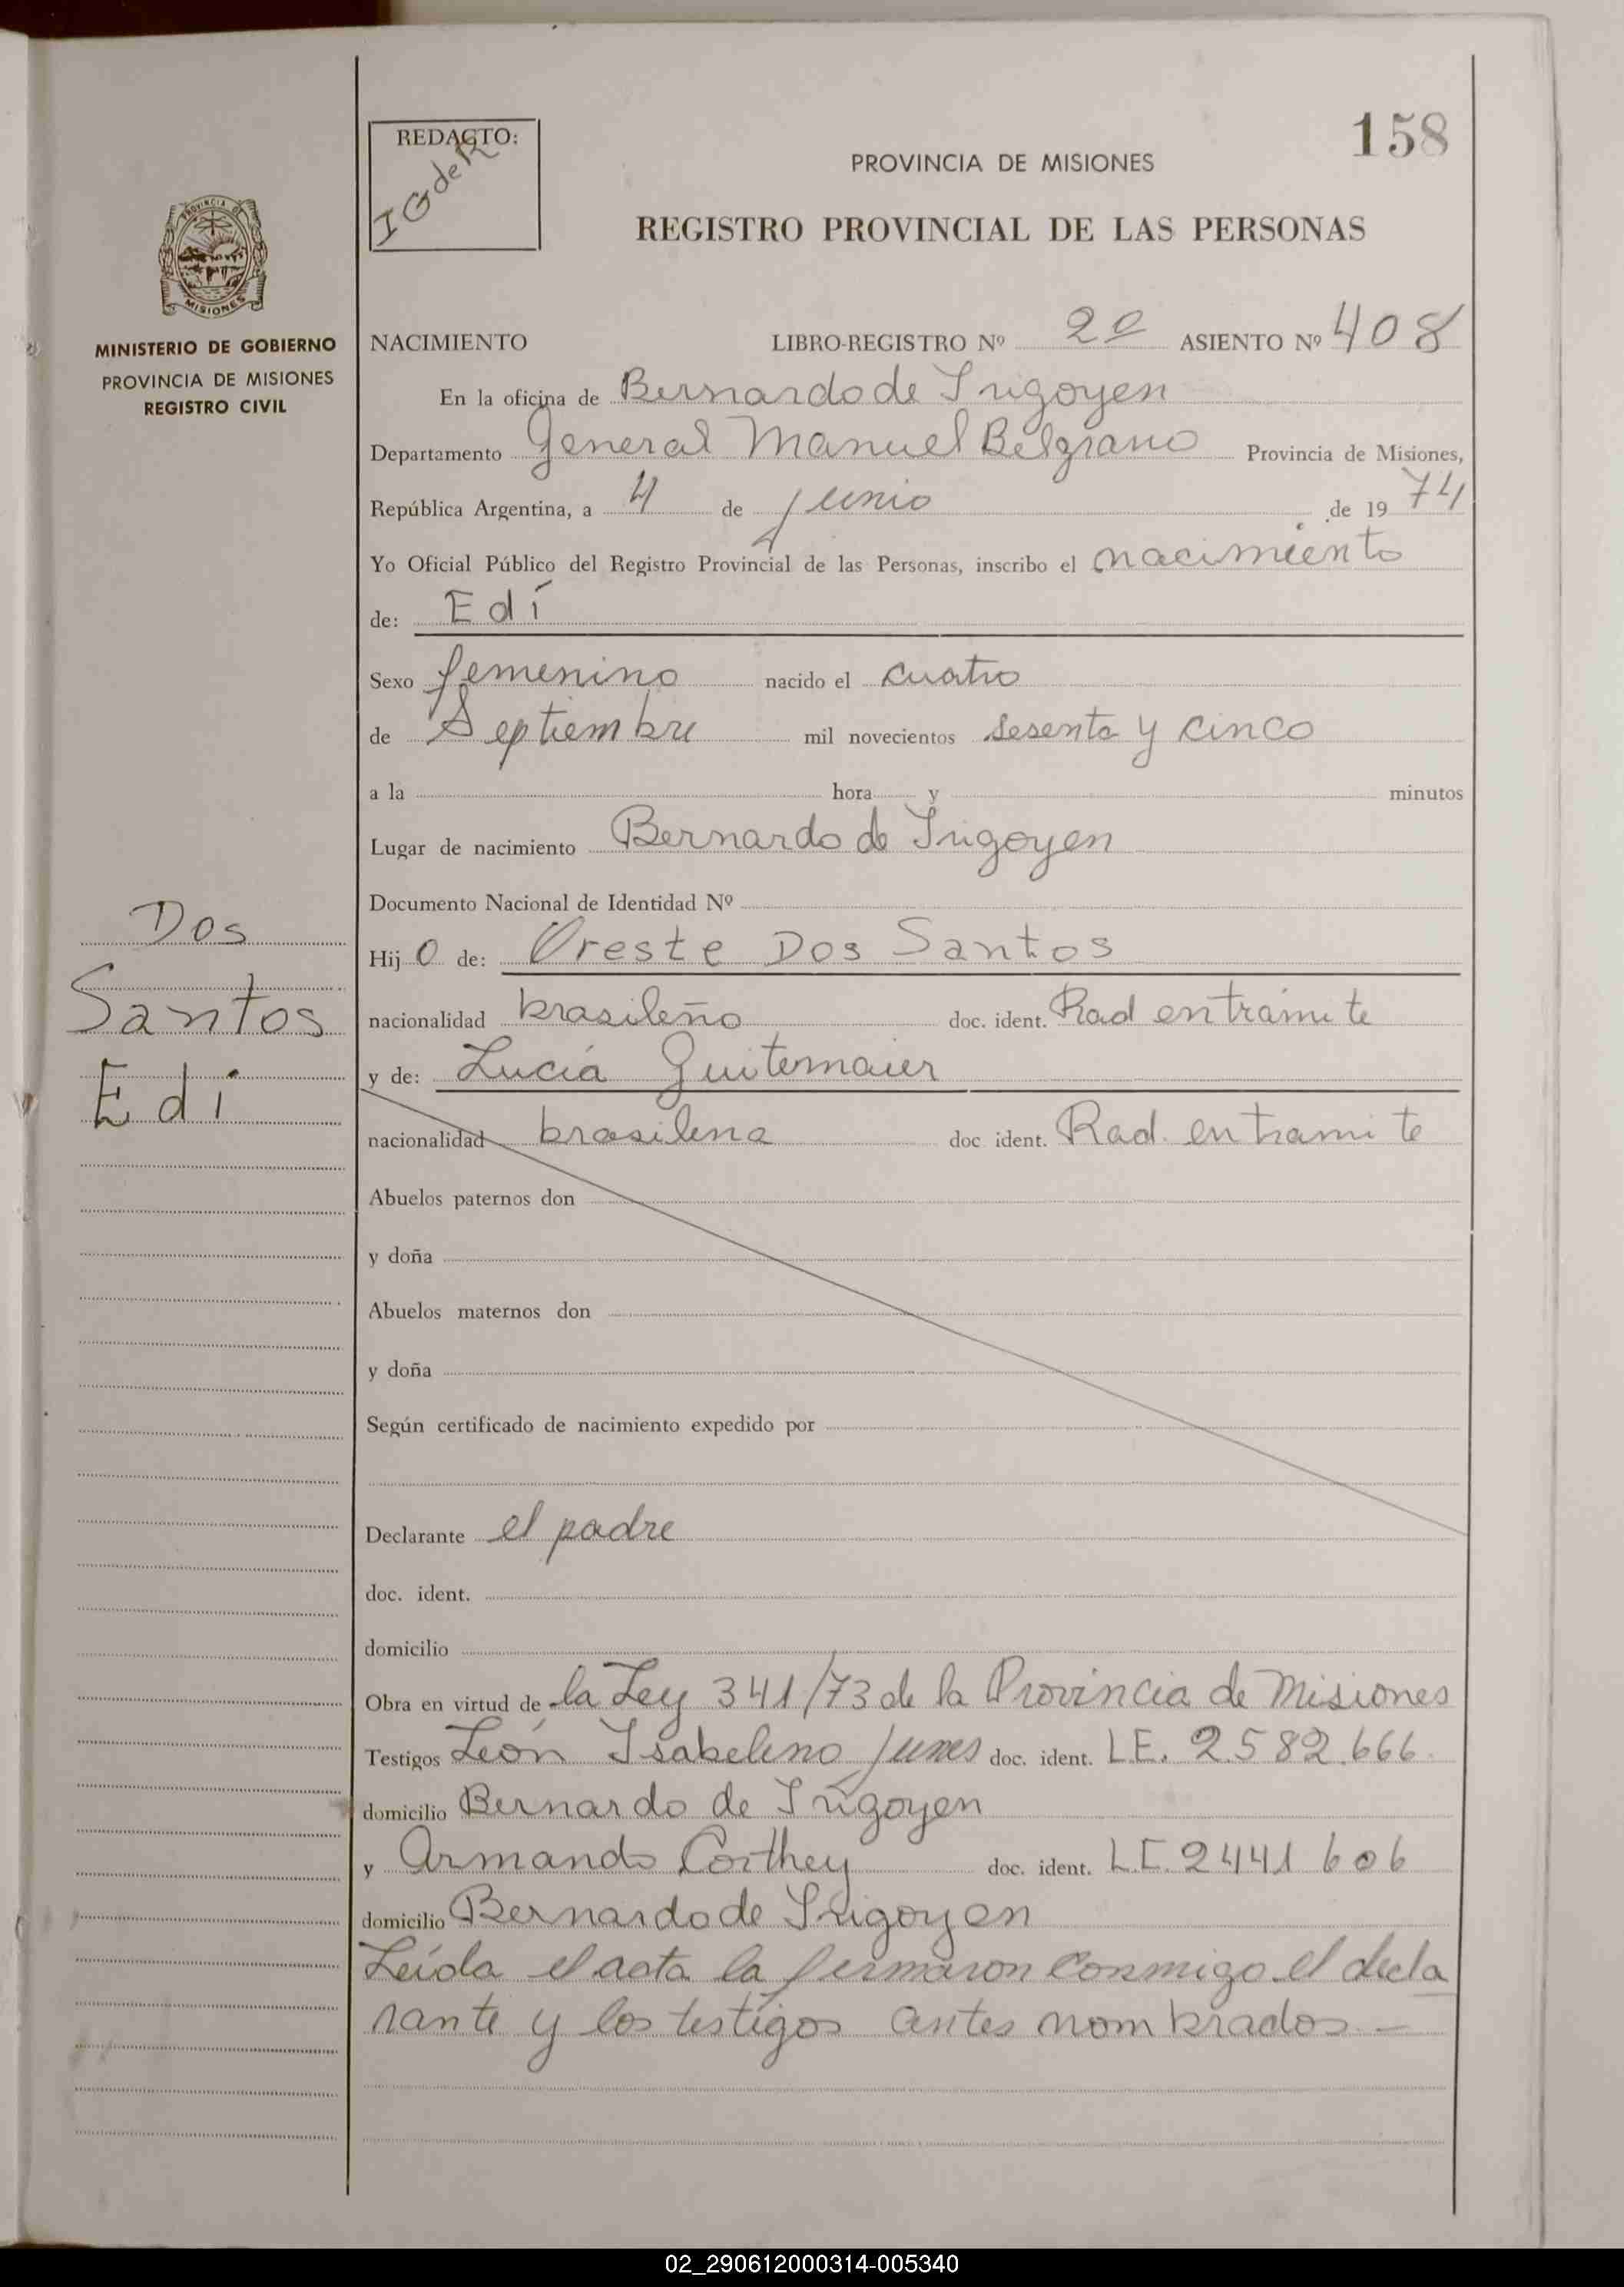 158
REDACTO:
IG de R
PROVINCIA DE MISIONES
REGISTRO PROVINCIAL DE LAS PERSONAS
PROVINCIA DE
MISIONES
MINISTERIO DE GOBIERNO
PROVINCIA DE MISIONES
REGISTRO CIVIL
NACIMIENTO LIBRO-REGISTRO Nº 2º ASIENTO Nº 408
En la oficina de Bernardo de Irigoyen
Departamento General Manuel Belgrano Provincia de Misiones,
República Argentina, a 4 de junio de 19 74
Yo Oficial Público del Registro Provincial de las Personas, inscribo el nacimiento
de: Edí
Sexo femenino nacido el cuatro
de Septiembre mil novecientos sesenta y cinco
a la hora y minutos
Lugar de nacimiento Bernardo de Irigoyen
Documento Nacional de Identidad Nº
Dos
Santos
Edí
Hij o de: Oreste Dos Santos
nacionalidad brasileño doc. ident. Rad en trámite
y de: Lucía Guitemaier
nacionalidad brasilena doc ident. Rad. en tramite
Abuelos paternos don
y doña
Abuelos maternos don
y doña
Según certificado de nacimiento expedido por
Declarante el padre
doc. ident.
domicilio
Obra en virtud de la Ley 341/73 de la Provincia de Misiones
Testigos León Isabelino doc. ident. L.E. 2.582.666
domicilio Bernardo de Irigoyen
y Armando doc. ident. L.E. 2441606
domicilio Bernardo de Irigoyen
Leída el acta la firmaron conmigo el decla
rante y los testigos antes nombrados.-
02_290612000314-005340